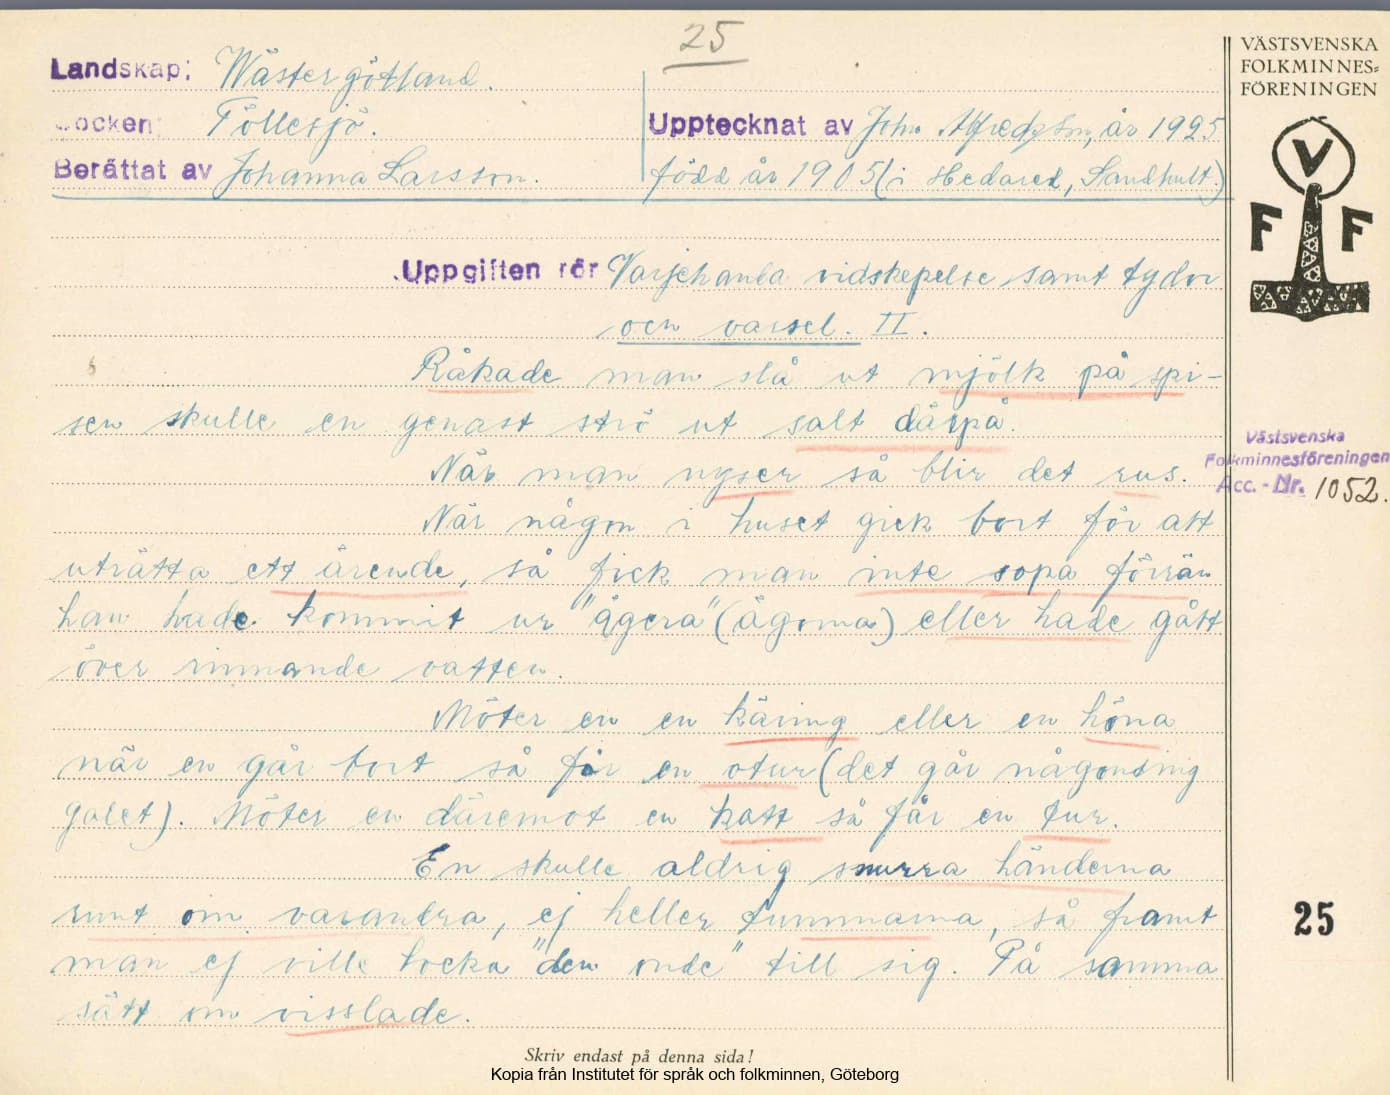 25
VÄSTSVENSKA
FOLKMINNES-
FÖRENINGEN
V
F F
Landskap: Wästergötland.
Socken: Töllesjö.
Upptecknat av John Alfredsson, år 1925
Berättat av Johanna Larsson.
född år 1905 (i Hedared, Sandhult.)
Uppgiften rör Varjehanda vidskepelse samt tydor
och varsel. II.
Råkade man slå ut mjölk på spi-
sen skulle en genast strö ut salt därpå.
När man nyser så blir det rus.
När någon i huset gick bort för att
uträtta ett ärende, så fick man inte sopa förrän
han hade kommit ur "ägera" (ägorna) eller hade gått
över rinnande vatten.
Möter en en käring eller en höna
när en går bort så får en otur (det går någonting
galet). Möter en däremot en katt så får en tur.
En skulle aldrig snurra händerna
runt om varandra, ej heller tummarna, så framt
man ej ville locka "den onde" till sig. På samma
sätt om visslade.
Västsvenska
Folkminnesföreningen
Acc.-Nr. 1052.
25
Skriv endast på denna sida!
Kopia från Institutet för språk och folkminnen, Göteborg